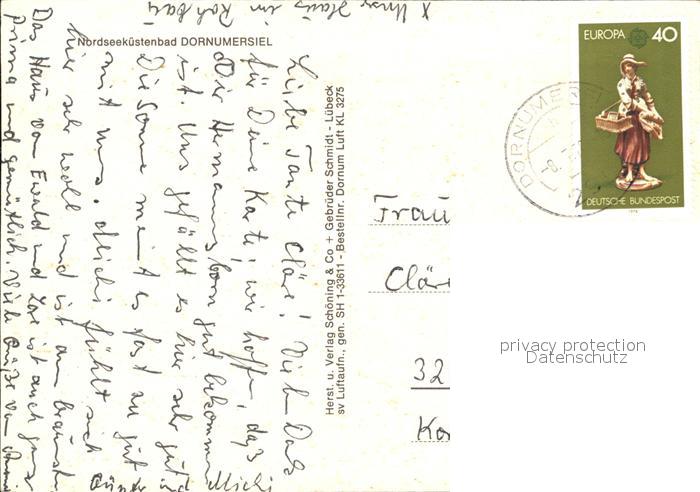 x Unser Haus im Rohbau
Nordseeküstenbad DORNUMERSIEL
Liebe Tante Cläre! Vielen Dank
für Deine Karte, wir hoffen, daß
Dir Hermannsborn gut bekommen
ist. Uns gefällt es hier sehr gut,
Die Sonne meint es fast zu gut
mit uns. Michi fühlt sich
hier sehr wohl und ist am
Das Haus von Ewald und ist auch ganz
prima und gemütlich. Viele Grüße von
Michi
Herst. u. Verlag Schöning & Co + Gebrüder Schmidt - Lübeck
sv Luftaufn., gen. SH 1-33611 - Bestellnr. Dornum Luft KL 3275
EUROPA 40
DEUTSCHE BUNDESPOST
DORNUMER
Frau
Cläre
32
privacy protection
Datenschutz